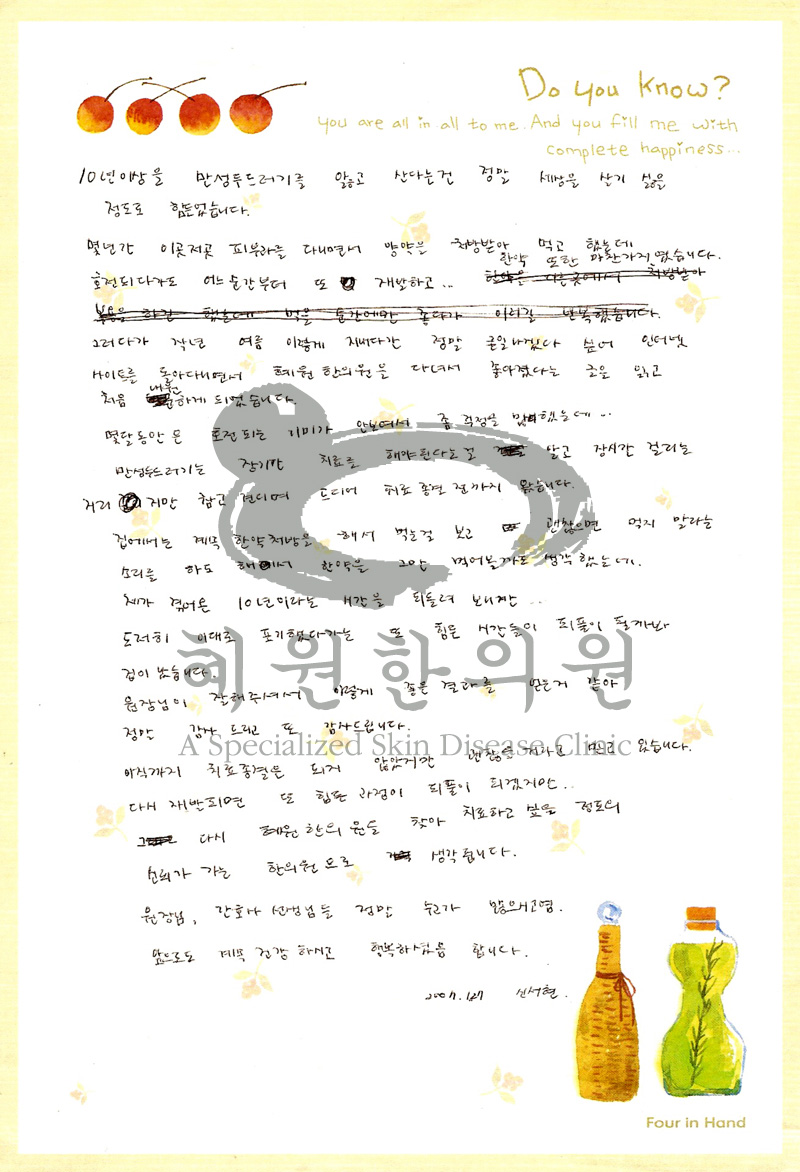 Do you know?
you are all in all to me. And you fill me with
complete happiness...
10년이상을 만성두드러기를 앓고 산다는건 정말 세상을 살기 싫을
정도로 힘들었습니다.
몇년간 이곳저곳 피부과를 다니면서 양약을 처방받아 먹고 했는데
한약 또한 마찬가지였습니다.
호전되다가도 어느순간부터 또 재발하고... 한약은 다른곳에서 처방받아
복용을 하긴 했는데 먹을 순간에만 좋다가 이러길 반복했습니다.
그러다가 작년 여름 이렇게 지내다간 정말 큰일나겠다 싶어 인터넷
사이트를 돌아다니면서 혜원한의원을 다녀서 좋아졌다는 글을 읽고
처음 내원하게 되었습니다.
몇달동안은 호전되는 기미가 안보여서 좀 걱정을 많이했는데...
만성두드러기는 장기간 치료를 해야된다는걸 알고 장시간 걸리는
거리지만 참고 견디며 드디어 치료종결전까지 왔습니다.
집에서는 계속 한약처방을 해서 먹는걸 보고 괜찮으면 먹지 말라는
소리를 하도 해서 한약을 그만 먹어볼까도 생각했는데.
제가 겪어온 10년이라는 시간을 되돌려 보니깐...
도저히 이대로 포기했다가는 또 힘든 시간들이 되풀이 될까봐
겁이 났습니다.
혜원한의원
원장님이 잘해주셔서 이렇게 좋은 결과를 얻는거 같아
정말 감사드리고 또 감사드립니다.
A Specialized Skin Disease Clinic
아직까지 치료종결은 되지 않았지만 괜찮을거라고 믿고 있습니다.
다시 재발되면 또 힘든 과정이 되풀이 되겠지만..
다시 혜원한의원을 찾아 치료하고 싶을 정도의
신뢰가 가는 한의원으로 생각됩니다.
원장님, 간호사 선생님들 정말 수고가 많으세요.
앞으로도 계속 건강하시고 행복하셨음 합니다.
2007. 1.27 신서현.
Four in Hand